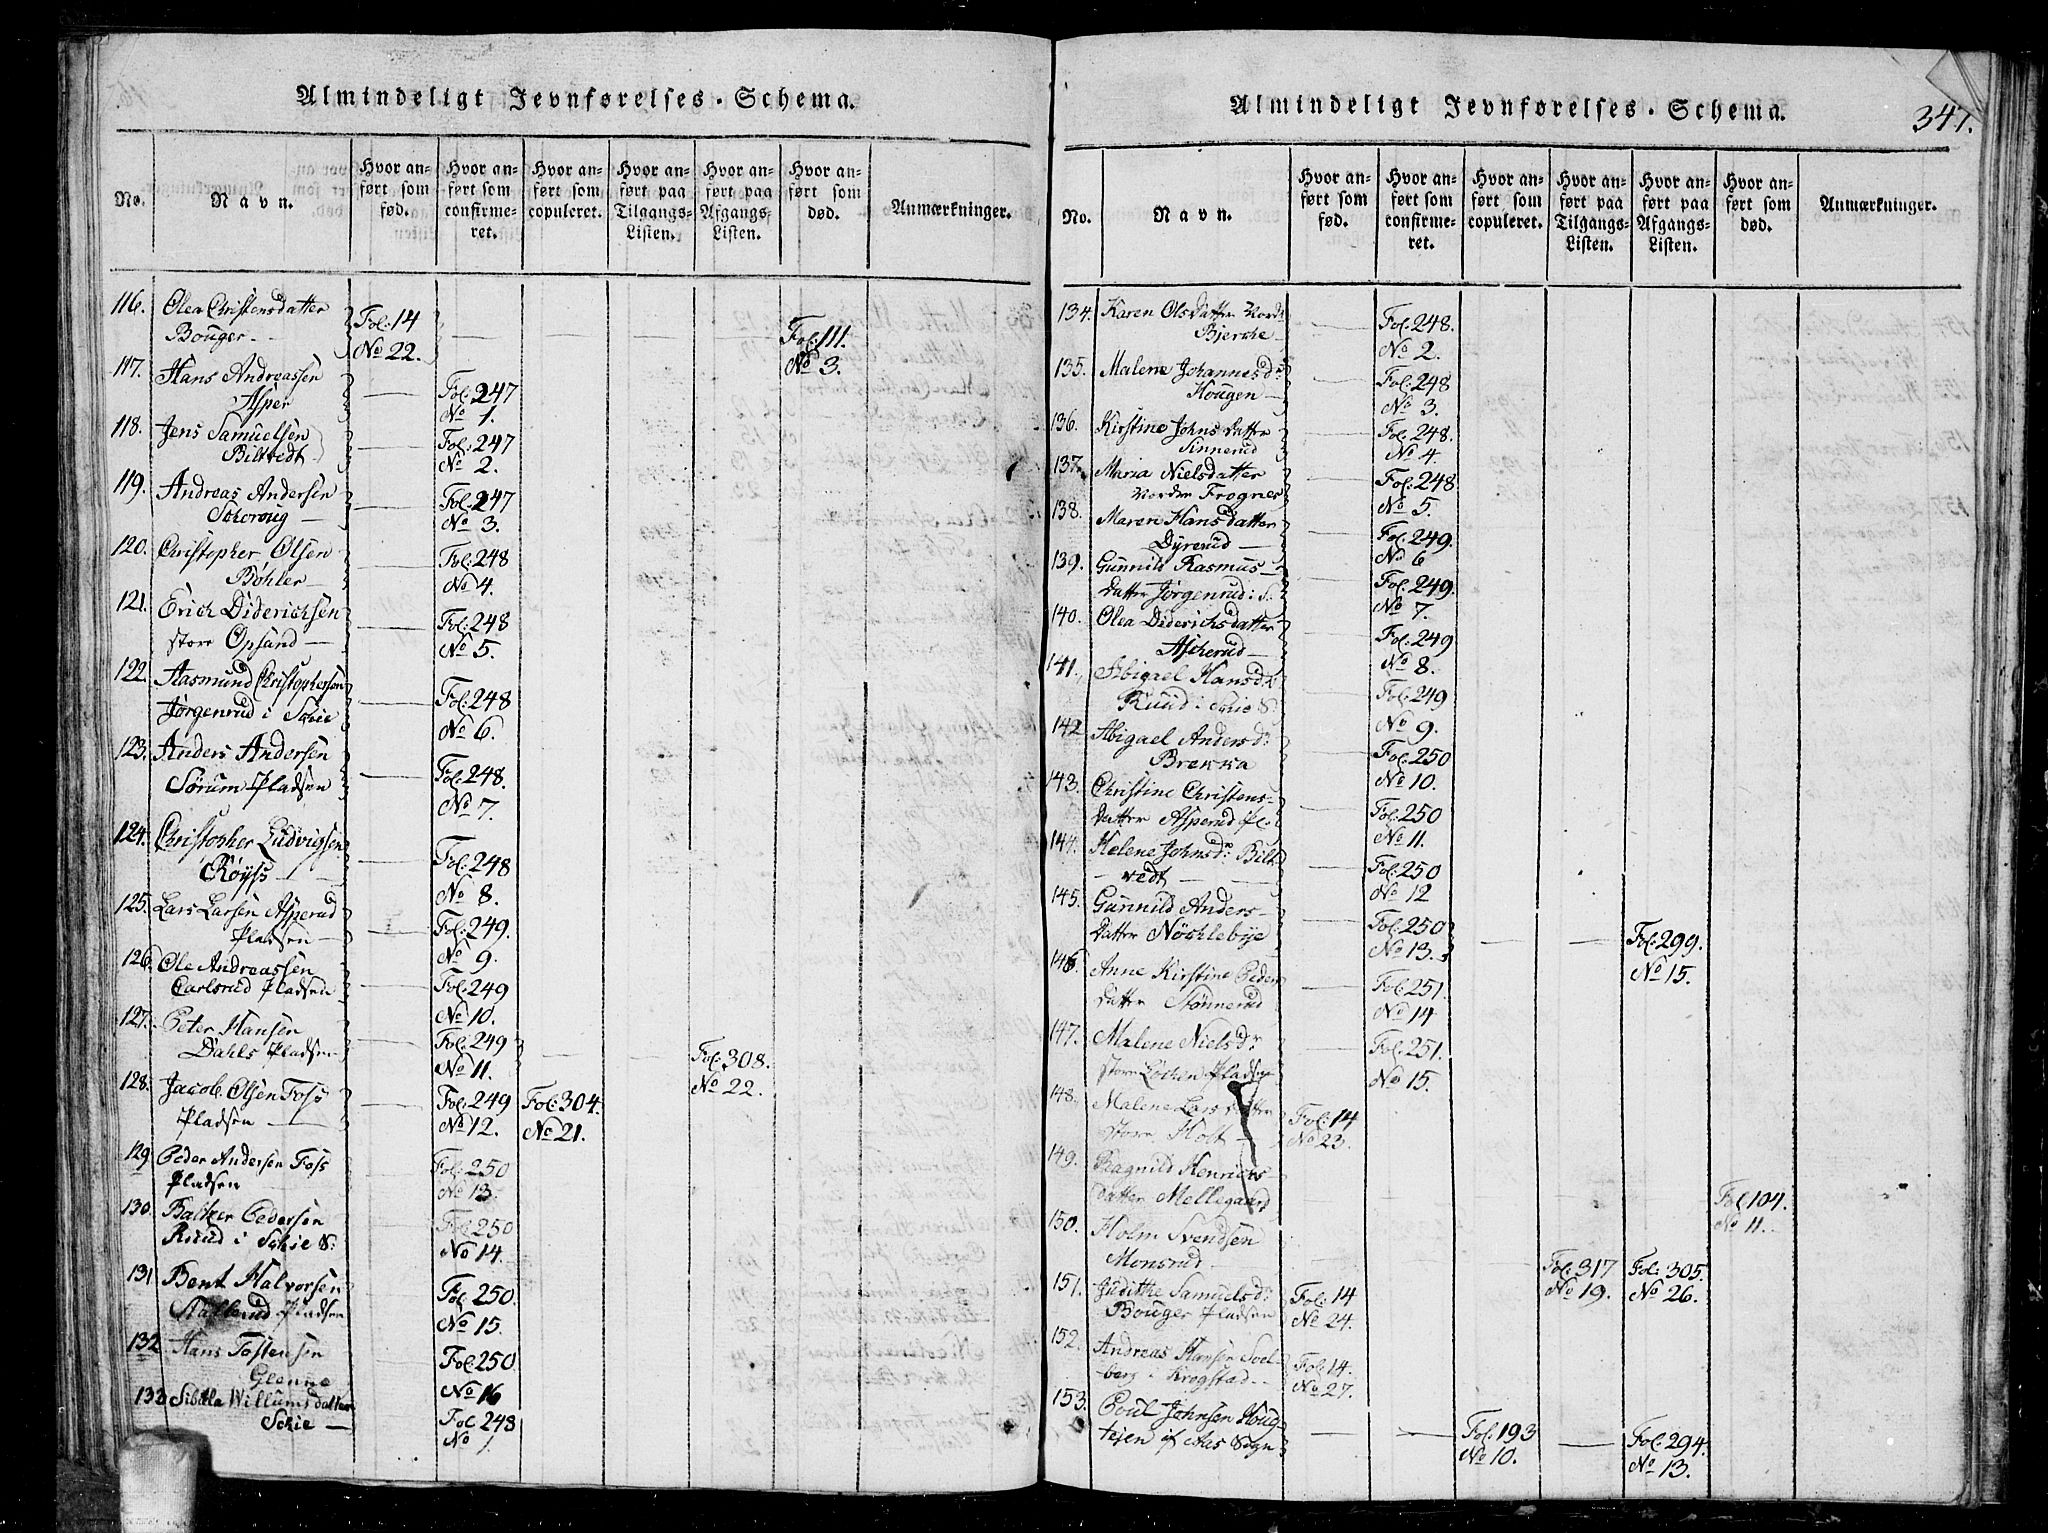 Almindeligt Jevnførelses-Schema.
No.
Navn.
Hvor anført som fød.
Hvor anført som confirmeret.
Hvor anført som copuleret.
Hvor anført paa Tilgangs-Listen.
Hvor anført paa Afgangs-Listen.
Hvor anført som død.
Anmærkninger.
116. Olea Christensdatter Fol: 14 — — — — Fol: 111.
Bouger — No 22. No 3.
117. Hans Andreassen — Fol: 247
Asper No 1.
118. Jens Samuelsen Fol: 247
Biltvedt No 2.
119. Andreas Andersen — Fol: 247
Schoroug — No 3.
120. Christopher Olsen — Fol: 248
Bøhler — No 4.
121. Erich Diderichsen — Fol: 248
store Opsand — No 5.
122. Aasmund Christophersen — Fol: 248
Jørgenrud i Schie No 6.
123. Anders Andersen — Fol: 248.
Sørum Pladsen No 7.
124. Christopher Ludvigsen — Fol: 248
Røyss — No 8.
125. Lars Larsen Asperud — Fol: 249.
Pladsen — No 9.
126. Ole Andreassen — Fol: 249
Carlsrud Pladsen No 10.
127. Peter Hansen — Fol: 249 — — Fol: 308.
Dahls Pladsen No 11. No 22.
128. Jacob Olsen Foss — Fol: 249 Fol: 304.
Pladsen — No 12. No 21.
129. Peder Andersen Foss — Fol: 250
Pladsen No 13.
130. Balzer Pedersen Fol: 250
Ruud i Schie S: No 14.
131. Bent Halvorsen Fol: 250.
Stallerud Pladsen No 15.
132. Hans Tostensen Fol: 250
Glenne No 16
133 Sibille Willumsdatter Fol: 248
Schie — No 1.
Almindeligt Jevnførelses-Schema.
347.
No.
Navn.
Hvor anført som fød.
Hvor anført som confirmeret.
Hvor anført som copuleret.
Hvor anført paa Tilgangs-Listen.
Hvor anført paa Afgangs-Listen.
Hvor anført som død.
Anmærkninger.
134. Karen Olsdatter Nordr — Fol: 248.
Bjerche — No 2.
135. Malene Johannesdr — Fol: 248
Hougen — No 3.
136. Kirstine Johnsdatter — Fol: 248.
Sinnerud No 4.
137. Maria Nielsdatter — Fol: 248
Nordre Frogner No 5.
138. Maren Hansdatter — Fol: 249.
Dyrerud — No 6
139. Gunnild Rasmus- Fol: 249.
datter Jørgenrud i S. No 7.
140. Olea Diderichsdatter — Fol: 249
Ascherud — No 8.
141. Abigael Hansdr — Fol: 249
Ruud i Schie S. No 9.
142 Abigael Andersdr — Fol: 250
Brekka No 10.
143. Christine Christens- — Fol: 250
datter Asperud Pl: No 11.
144. Helene Johnsdr Bilt — Fol: 250
vedt — No 12
145. Gunnild Anders- — Fol: 250 — — Fol: 299.
datter Nøchlebye No 13. No 15.
146. Anne Kirstine Peders — Fol: 251.
datter Stønnerud No 14
147. Malene Nielsdr — Fol: 251.
store Løchen Pladsen No 15.
148. Malene Larsdatter Fol: 14
store Holt — No 23.
149. Ragnild Henrichs Fol 104.
datter Mellegaard No 11.
150. Holm Svendsen — — — Fol: 317 Fol: 305.
Monsrud — No 19. No 26.
151. Judithe Samuelsdr Fol: 14
Bouger Pladsen No 24.
152. Andreas Hansen Soel- Fol: 14.
berg i Krogstad — No 27.
153. Poul Johnsen Houg — — Fol: 193 — Fol: 294.
tejen af Aas Sogn No 10. No 13.